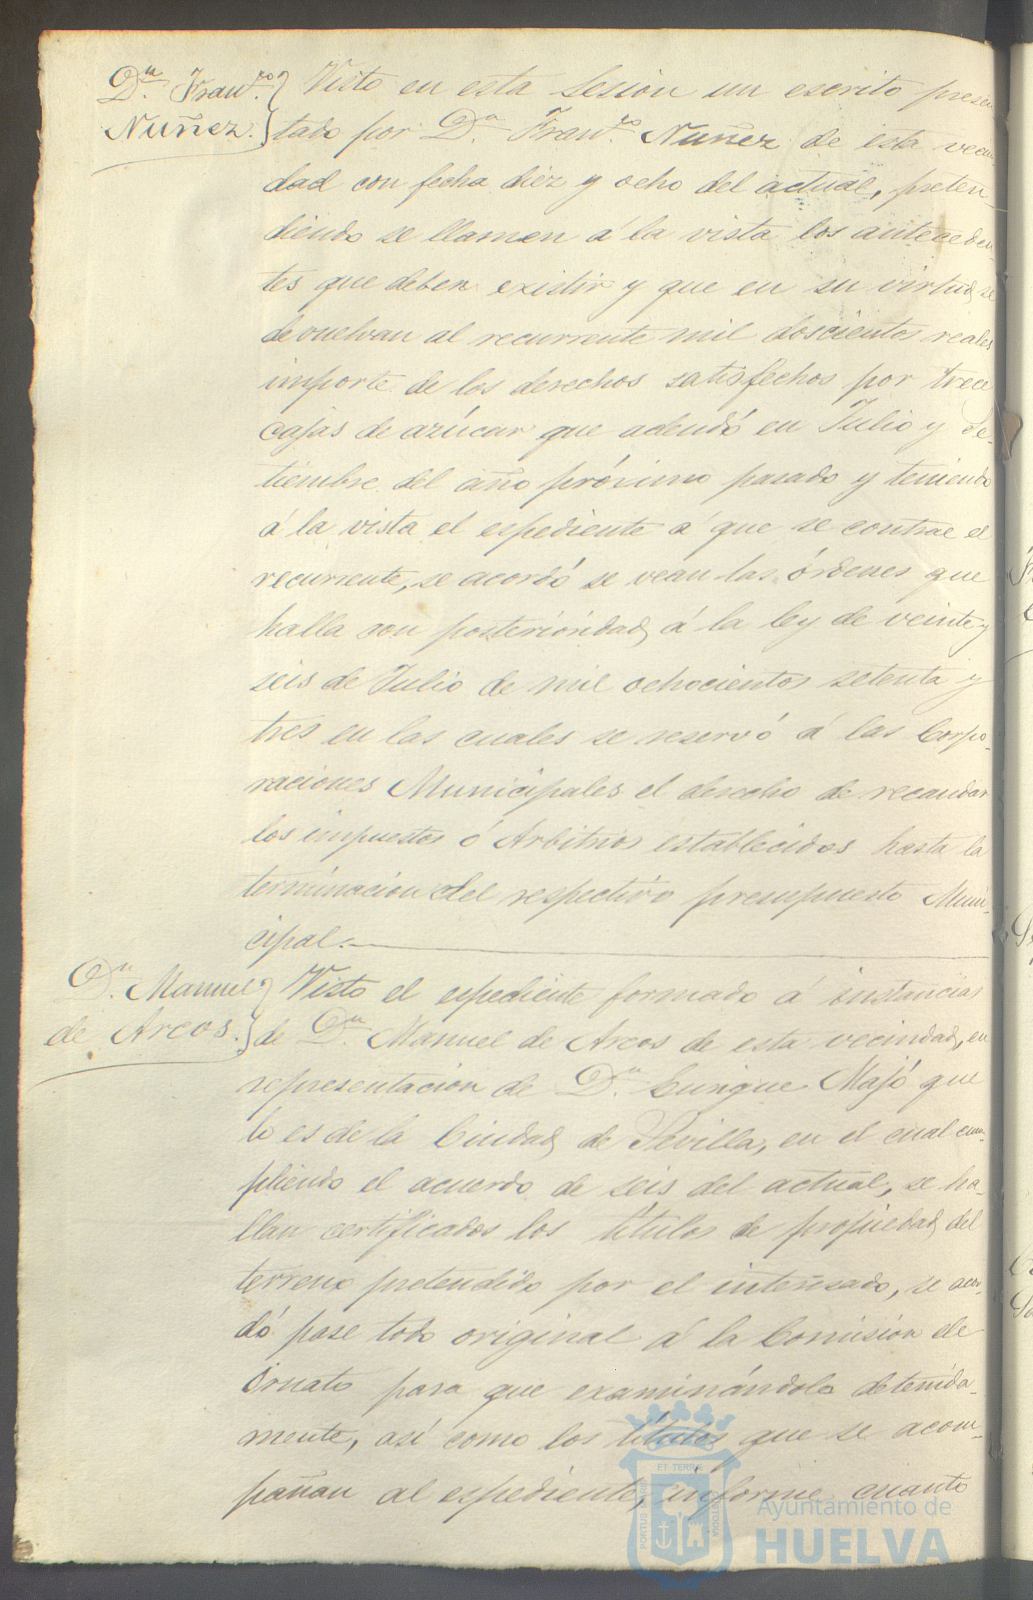 Dn. Franco.
Nuñez.
Visto en esta Sesion un escrito presen
tado por Dn. Franco. Nuñez de esta vecin
dad con fecha diez y ocho del actual, preten
diendo se llamen á la vista los anteceden
tes que deben existir y que en su virtud se
devuelvan al recurrente mil doscientos reales
importe de los derechos satisfechos por trece
cajas de azúcar que adeudó en Julio y Se-
tiembre del año próximo pasado y teniendo
á la vista el espediente á que se contrae el
recurrente, se acordó se vean las órdenes que
halla con posterioridad á la ley de veinte y
seis de Julio de mil ochocientos setenta y
tres en las cuales se reservó á las Corpo-
raciones Municipales el derecho de recaudar
los impuestos ó Arbitrios establecidos hasta la
terminacion del respectivo presupuesto Muni-
cipal.
Dn. Manuel
de Arcos.
Visto el espediente formado á instancias
de Dn. Manuel de Arcos de esta vecindad, en
representacion de Dn. Enrique Majó que
lo es de la Ciudad de Sevilla, en el cual cum-
pliendo el acuerdo de seis del actual, se ha-
llan certificados los títulos de propiedad del
terreno pretendido por el interesado, se acor-
dó pase todo original á la Comision de
Ornato para que examinándolo detenida-
mente, así como los títulos que se acom-
pañan al espediente, informe cuanto
PORTUS MARIS
ET TERRÆ
CUSTODIA
Ayuntamiento de
HUELVA